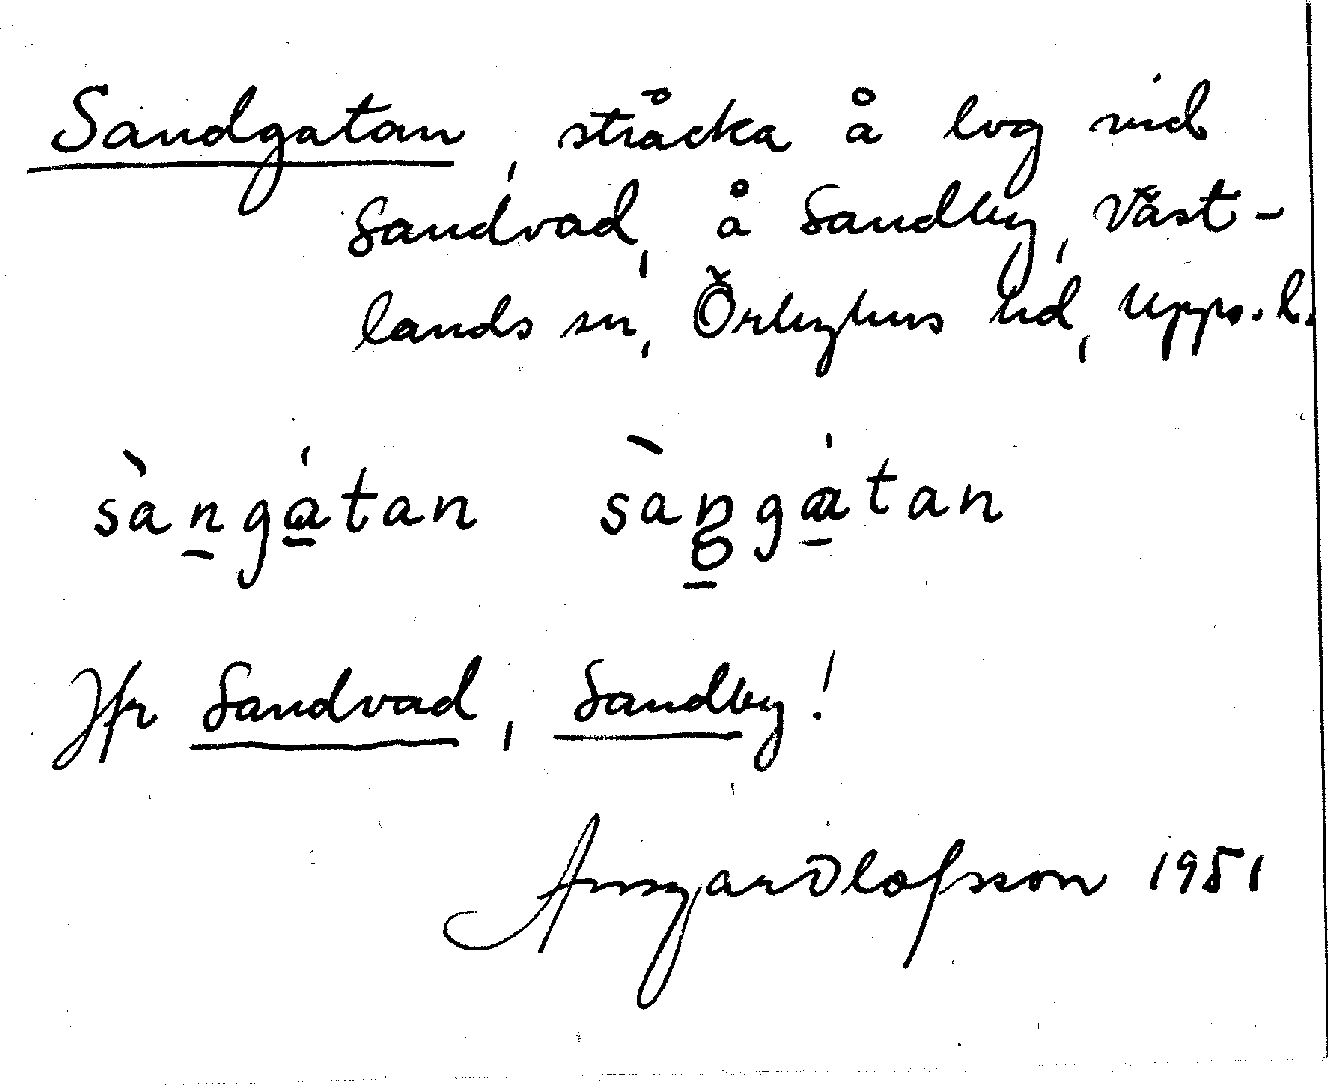 Sandgatan, sträcka å lvg vid
Sandvad, å Sandby, Väst-
lands sn, Örbyhus hd, Upps. l.
sàngátan sàŋgátan
Jfr Sandvad, Sandby!
Ansgar Olofsson 1951